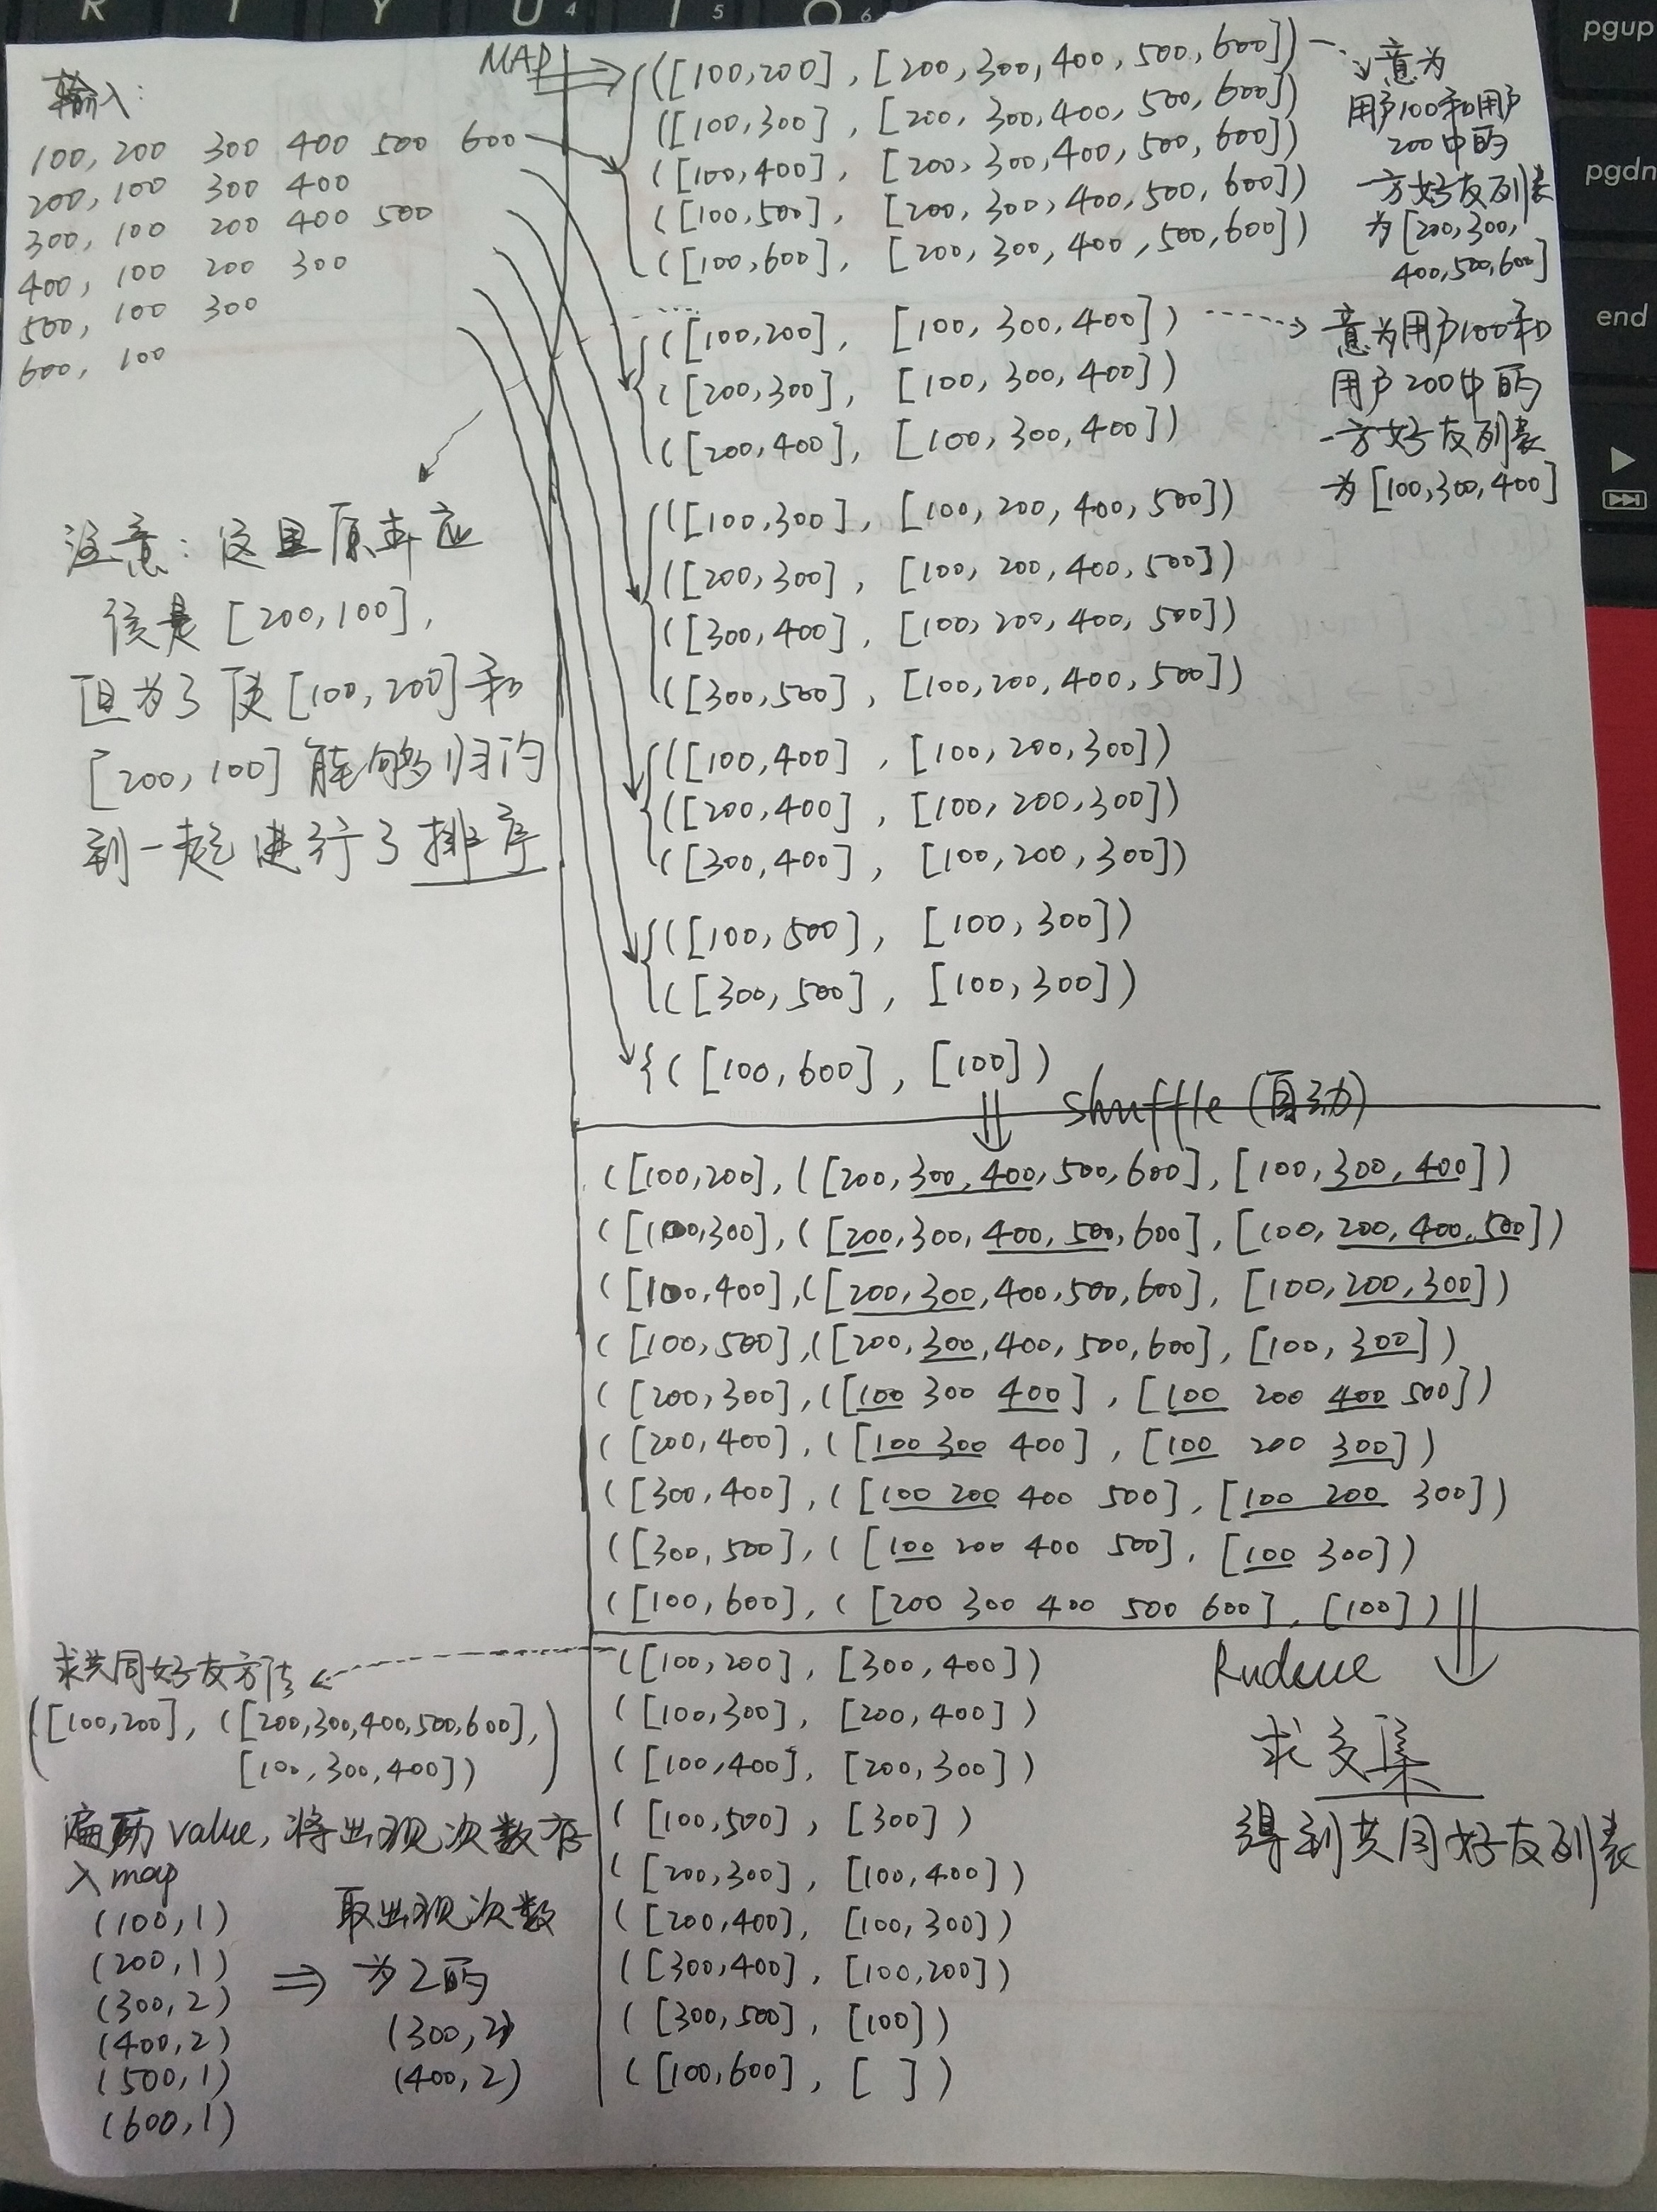 R T Y U 4 I 5 O 6
pgup
pgdn
end
输入:
100, 200 300 400 500 600
200, 100 300 400
300, 100 200 400 500
400, 100 200 300
500, 100 300
600, 100
注意: 这里原本应
该是 [200,100],
但为了使[100,200]和
[200,100]能够归约
到一起进行了排序
MAP
([100,200], [200,300,400,500,600])
([100,300], [200,300,400,500,600])
([100,400], [200,300,400,500,600])
([100,500], [200,300,400,500,600])
([100,600], [200,300,400,500,600])
意为
用户100和用户
200中的
一方好友列表
为[200,300,
400,500,600]
([100,200], [100,300,400])
([200,300], [100,300,400])
([200,400], [100,300,400])
意为用户100和
用户200中的
一方好友列表
为[100,300,400]
([100,300], [100,200,400,500])
([200,300], [100,200,400,500])
([300,400], [100,200,400,500])
([300,500], [100,200,400,500])
([100,400], [100,200,300])
([200,400], [100,200,300])
([300,400], [100,200,300])
([100,500], [100,300])
([300,500], [100,300])
([100,600], [100])
shuffle (自动)
([100,200], ([200,300,400,500,600], [100,300,400])
([100,300], ([200,300,400,500,600], [100,200,400,500])
([100,400], ([200,300,400,500,600], [100,200,300])
([100,500], ([200,300,400,500,600], [100,300])
([200,300], ([100 300 400], [100 200 400 500])
([200,400], ([100 300 400], [100 200 300])
([300,400], ([100 200 400 500], [100 200 300])
([300,500], ([100 200 400 500], [100 300])
([100,600], ([200 300 400 500 600], [100])
Rudeue
求交集
得到共同好友列表
([100,200], [300,400])
([100,300], [200,400])
([100,400], [200,300])
([100,500], [300])
([200,300], [100,400])
([200,400], [100,300])
([300,400], [100,200])
([300,500], [100])
([100,600], [ ])
求共同好友方法
([100,200], ([200,300,400,500,600],
[100,300,400]))
遍历value,将出现次数存
入map
(100,1)
(200,1)
(300,2)
(400,2)
(500,1)
(600,1)
取出现次数
为2的
(300,2)
(400,2)